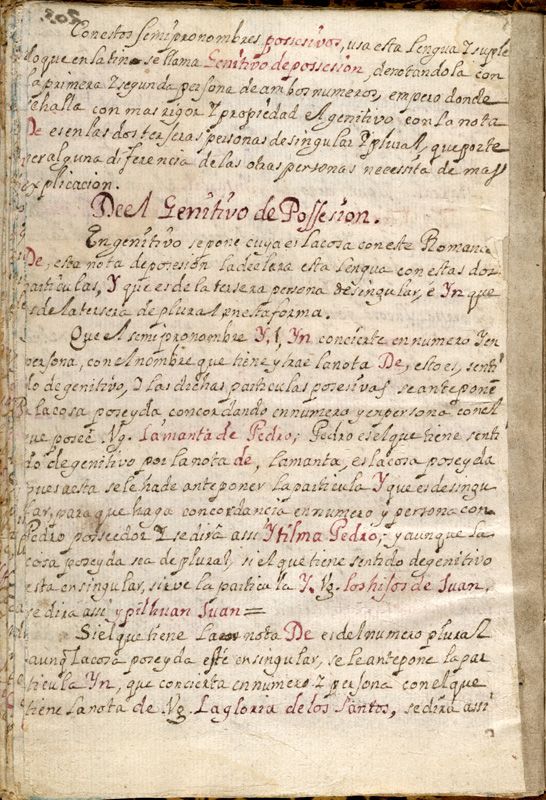 Con estos semipronombres possesivos, usa esta lengua Z suple
lo que en latin se llama Genitivo de possesion, denotandola con
la primera Z segunda persona de ambos numeros, empero donde
se halla con mas rigor Z propiedad el genitivo con la nota
De es en las dos terseras personas de singular Z plural, que por te
ner alguna diferencia de las otras personas necessita de mas
explicacion.
De el Genitivo de Possesion.
En genitivo se pone cuya es la cosa con este Romance
De, esta nota de posesion la declara esta lengua con estas dos
particulas, Y que es de la tersera persona de singular, e Yn que
es de la tersera de plural en esta forma.
Que el semipronombre Y, l, Yn concierte en numero Z en
persona, con el nombre que tiene y trae la nota De, esto es, senti
do de genitivo, Z las dichas particulas posesivas se anteponen
a la cosa poseyda concordando en numero y en persona con el
que posee. Vg. La manta de Pedro; Pedro es el que tiene senti
do de genitivo por la nota de, la manta, es la cosa poseyda
pues a esta se le ha de anteponer la particula Y que es de singu
lar, para que haga concordancia en numero y persona con
Pedro posseedor Z se dirà assi Ytilma Pedro; y aunque la
cosa poseyda sea de plural, si el que tiene sentido de genitivo
esta en singular, sirve la particula Y. Vg. los hijos de Juan,
se dira assi ypilhuan Juan =
Si el que tiene la nota De es del numero plural
aunq la cosa poseyda esté en singular, se le antepone la par
ticula Yn, que concierta en numero Z persona con el que
tiene la nota de Vg. La gloria de los Santos, se dirà assi